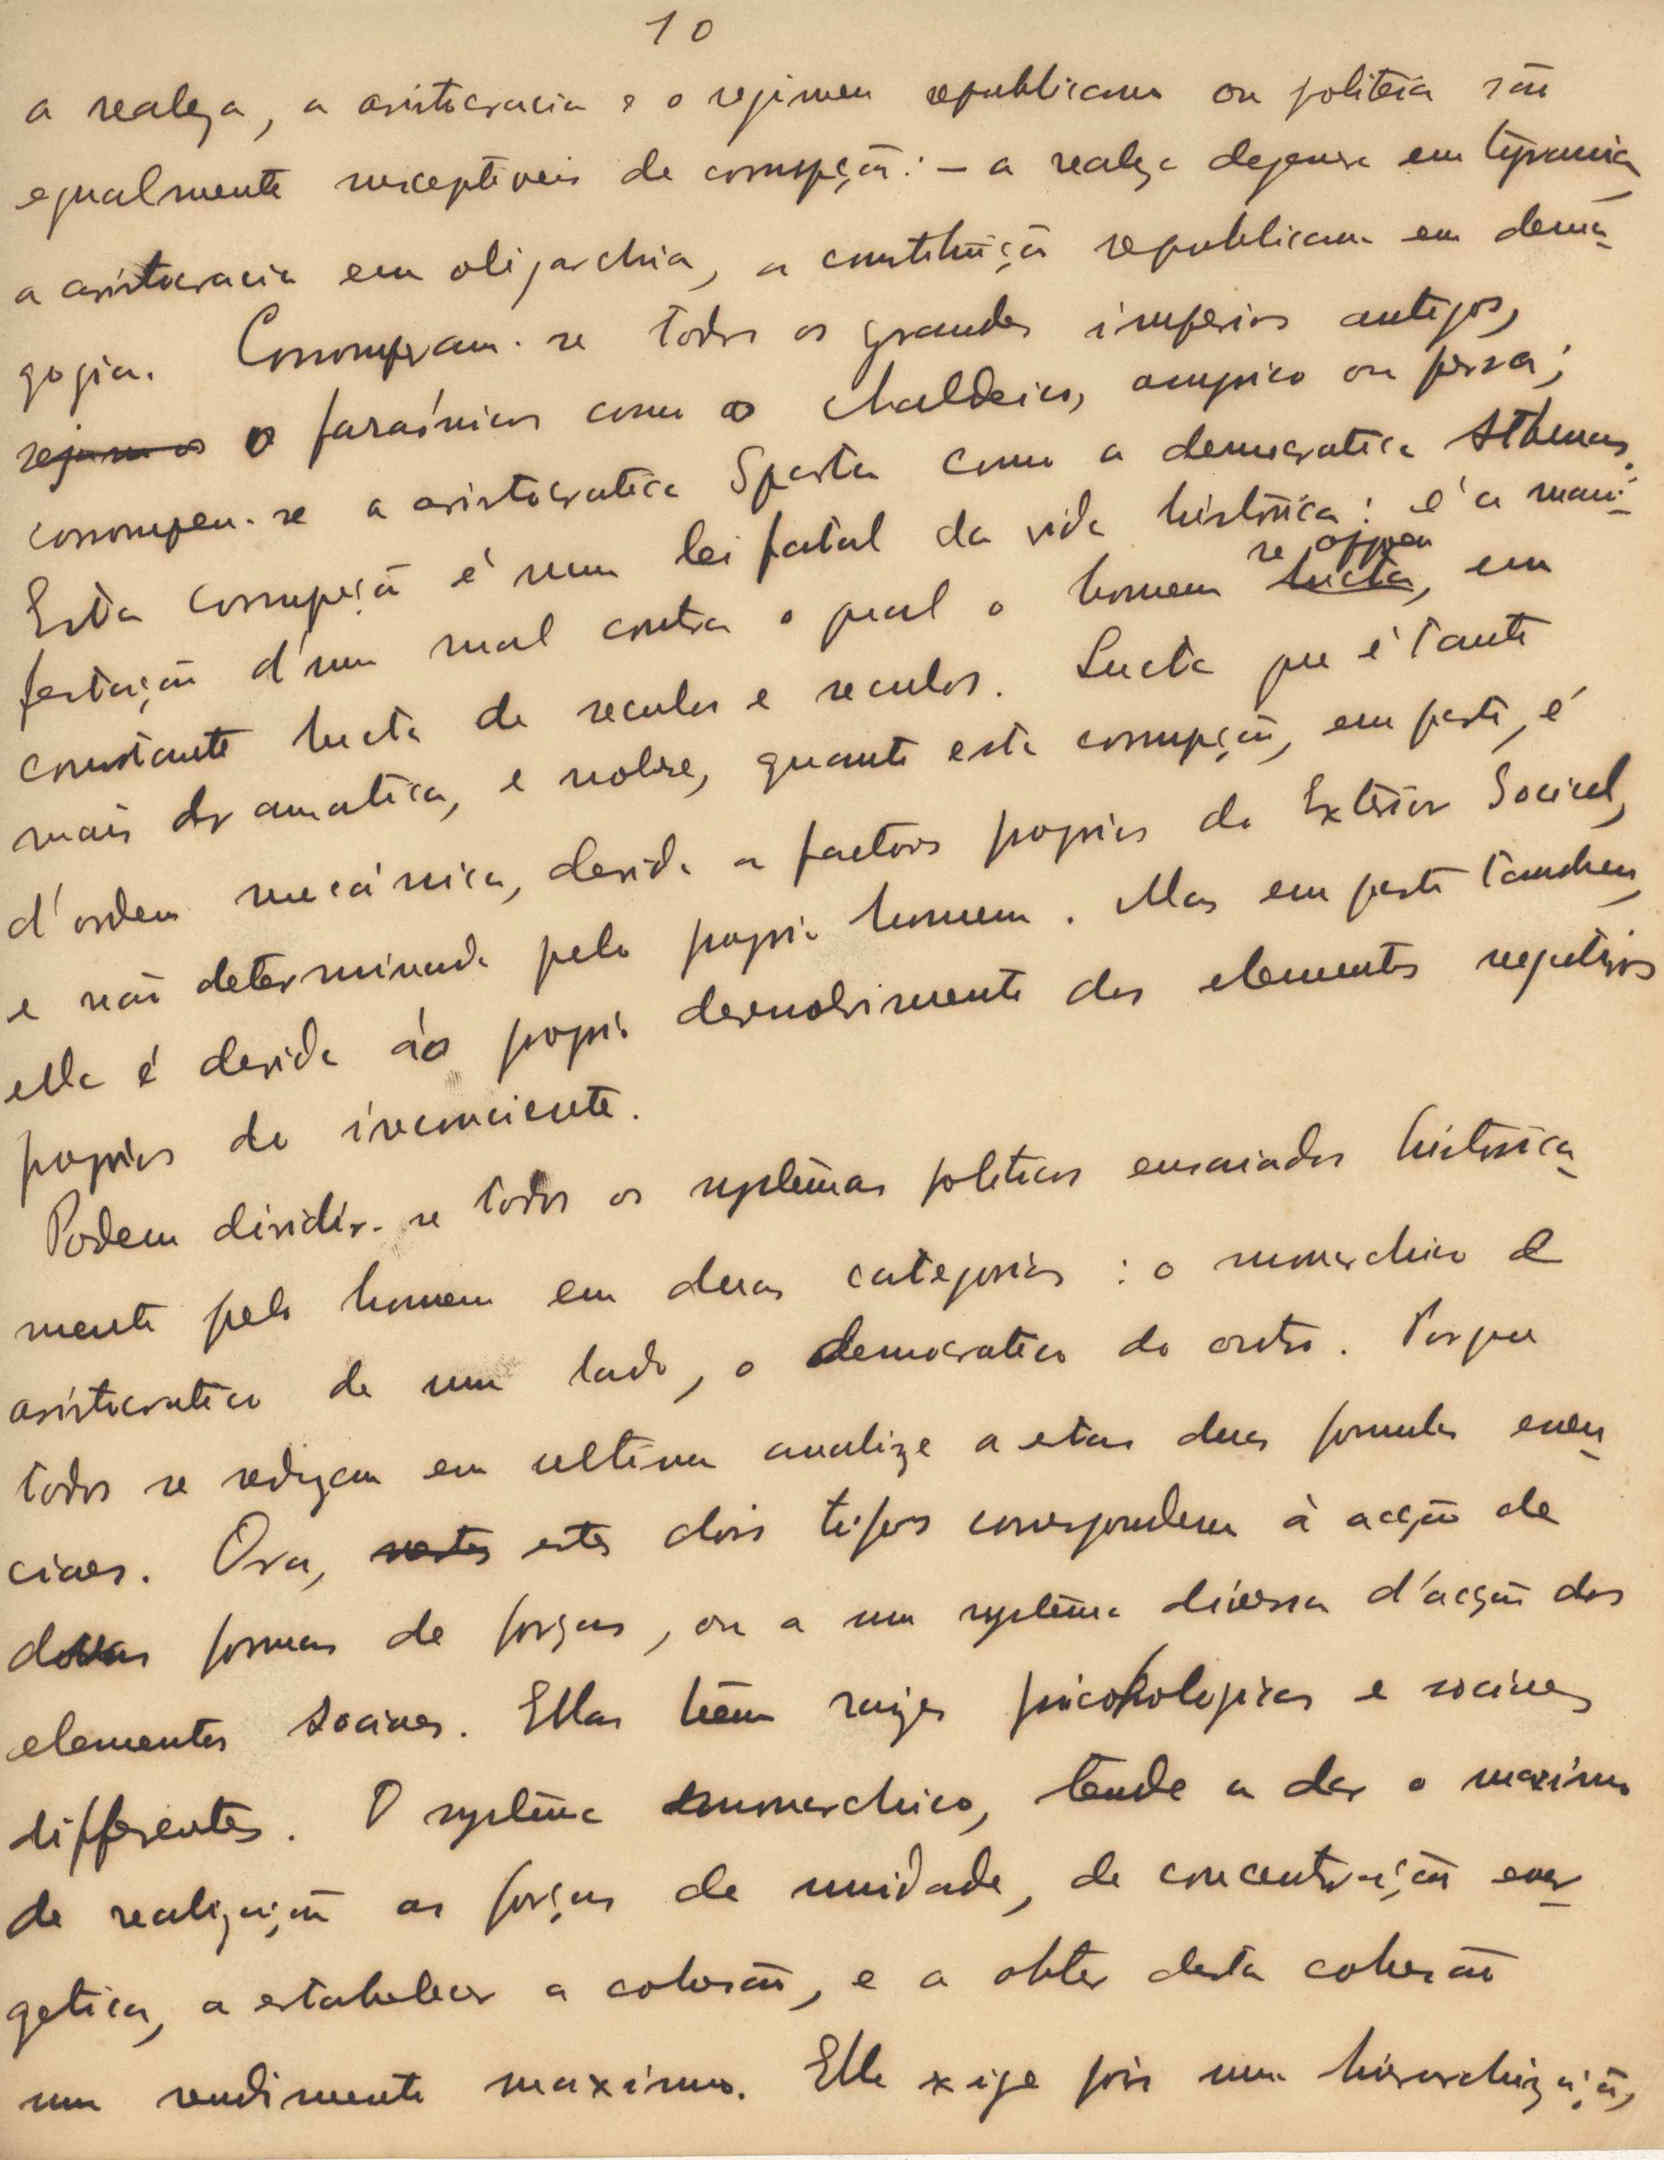 10
a realeza, a aristocracia e o regimen republicano ou politeia são
egualmente susceptiveis de corrupção: — a realeza degenera em tyrania,
a aristocracia em oligarchia, a constituição republicana em dema-
gogia. Corromperam-se todos os grandes imperios antigos,
sejam os o faraónicos como o chaldeico, assyrico ou persa;
corrompeu-se a aristocratica Sparta como a democratica Athenas.
Esta corrupção é uma lei fatal da vida histórica: é a mani-
festação d'um mal contra o qual o homem lucta, se oppoem em
constante lucta de seculos e seculos. Lucta que é tanto
mais dramatica, e nobre, quanto esta corrupção, em parte, é
d'ordem mecánica, devida a factores proprios do Exterior Social,
e não determinada pelo proprio homem. Mas em parte tambem,
ella é devida áo proprio desenvolvimento dos elementos negativos
proprios do inconsciente.
Podem dividir-se todos os systemas politicos ensaiados historica-
mente pelo homem em duas categorias: o monarchico e
aristocratico de um lado, o democratico do outro. Porque
todos se redizem em ultima analize a estas duas formulas essen-
ciaes. Ora, nestes estes dois tipos correspondem à acção de
duas formas de forças, ou a um systema diverso d'acção dos
elementos sociaes. Ellas têem raizes psicohologicas e sociaes
differentes. O systema monarchico, tende a dar o maximo
de realização as forças de unidade, de concentração ener-
getica, a estabelecer a cohesão, e a obter desta cohesão
um rendimento maximo. Elle xige pois uma hierarchização,